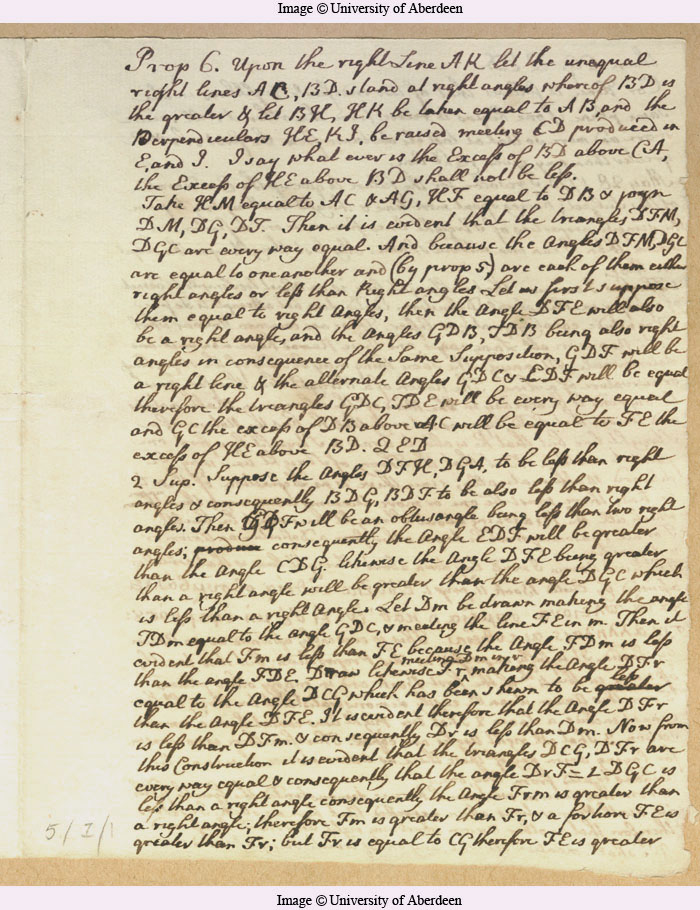 Image © University of Aberdeen
Prop 6. Upon the right Line AK let the unequal
right lines AC, BD. stand at right angles whereof BD is
the greater & let BH, HK be taken equal to AB, and the
Perpendiculars HE, KI, be raised meeting CD produced in
E, and I. I say what ever is the Excess of BD above CA,
the Excess of HE above BD shall not be less.
Take HM equal to AC & AG, HF equal to DB & joyn
DM, DG, DF. Then it is evident that the triangles DFM,
DGC are every way equal. And because the Angles DFM, DGC
are equal to one another and (by prop 5) are each of them either
right angles or less than Right angles Let us first suppose
them equal to right Angles, then the Angle DFE will also
be a right angle, and the Angles GDB, FDB being also right
angles in consequence of the Same Supposition, GDF will be
a right line & the alternate Angles GDC & EDF will be equal
therefore the triangles GDC, FDE will be every way equal
and GC the excess of DB above AC will be equal to FE the
excess of HE above BD. QED
2 Sup. Suppose the Angles DFH, DGA, to be less than right
angles & consequently BDG, BDF to be also less than right
angles. Then GDF will be an obtusangle being less than two right
angles; produce consequently the Angle EDF will be greater
than the Angle CDG. likewise the Angle DFE being greater
than a right angle will be greater than the angle DGC which
is less than a right Angle. Let Dm be drawn making the angle
FDm equal to the angle GDC, & meeting the line FE in m. Then it
evident that Fm is less than FE because the Angle FDm is less
than the angle FDE. Draw likewise Fr meeting Dm in r making the Angle DFr
equal to the Angle DCG which has been shewn to be greater less
than the Angle DFE. It is evident therefore that the Angle DFr
is less than DFm. & consequently Dr is less than Dm. Now from
this Construction it is evident that the triangles DCG, DFr are
every way equal & consequently that the angle DrF = L DGC is
less than a right angle consequently the Angle Frm is greater than
a right angle; therefore Fm is greater than Fr, & a fortiore FE is
greater than Fr; but Fr is equal to CG therefore FE is greater
5/I/1
Image © University of Aberdeen